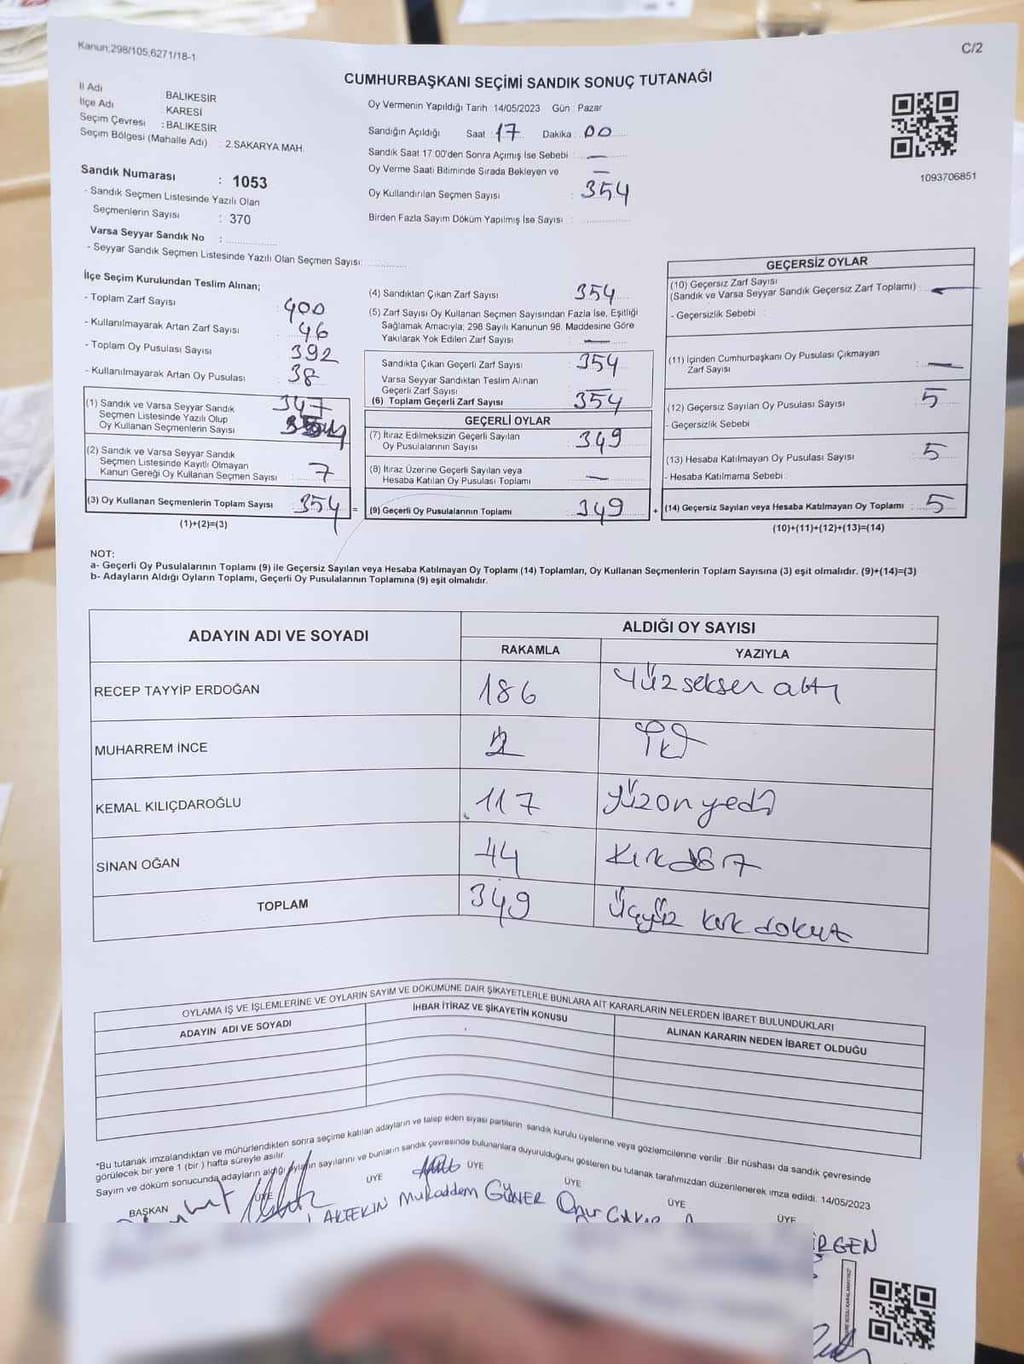 Kanun;298/105,6271/18-1
C/2
CUMHURBAŞKANI SEÇİMİ SANDIK SONUÇ TUTANAĞI
İl Adı BALIKESİR
İlçe Adı KARESİ
Seçim Çevresi : BALIKESİR
Seçim Bölgesi (Mahalle Adı) : 2.SAKARYA MAH.
Oy Vermenin Yapıldığı Tarih 14/05/2023 Gün : Pazar
Sandığın Açıldığı Saat : 17 Dakika : 00
Sandık Saat 17.00'den Sonra Açımış İse Sebebi : —
Oy Verme Saati Bitiminde Sırada Bekleyen ve —
Oy Kullandırılan Seçmen Sayısı : 354
Birden Fazla Sayım Döküm Yapılmış İse Sayısı :
1093706851
Sandık Numarası : 1053
- Sandık Seçmen Listesinde Yazılı Olan
Seçmenlerin Sayısı : 370
Varsa Seyyar Sandık No :
- Seyyar Sandık Seçmen Listesinde Yazılı Olan Seçmen Sayısı:
İlçe Seçim Kurulundan Teslim Alınan;
- Toplam Zarf Sayısı 400
- Kullanılmayarak Artan Zarf Sayısı : 46
- Toplam Oy Pusulası Sayısı : 392
- Kullanılmayarak Artan Oy Pusulası : 38
(1) Sandık ve Varsa Seyyar Sandık 347
Seçmen Listesinde Yazılı Olup
Oy Kullanan Seçmenlerin Sayısı
(2) Sandık ve Varsa Seyyar Sandık
Seçmen Listesinde Kayıtlı Olmayan
Kanun Gereği Oy Kullanan Seçmen Sayısı : 7
(3) Oy Kullanan Seçmenlerin Toplam Sayısı : 354
(1)+(2)=(3)
(4) Sandıktan Çıkan Zarf Sayısı 354
(5) Zarf Sayısı Oy Kullanan Seçmen Sayısından Fazla İse, Eşitliği
Sağlamak Amacıyla; 298 Sayılı Kanunun 98. Maddesine Göre
Yakılarak Yok Edilen Zarf Sayısı : —
Sandıkta Çıkan Geçerli Zarf Sayısı : 354
Varsa Seyyar Sandıktan Teslim Alınan
Geçerli Zarf Sayısı
(6) Toplam Geçerli Zarf Sayısı 354
GEÇERLİ OYLAR
(7) İtiraz Edilmeksizin Geçerli Sayılan
Oy Pusulalarının Sayısı : 349
(8) İtiraz Üzerine Geçerli Sayılan veya
Hesaba Katılan Oy Pusulası Toplamı : —
= (9) Geçerli Oy Pusulalarının Toplamı : 349
GEÇERSİZ OYLAR
(10) Geçersiz Zarf Sayısı
(Sandık ve Varsa Seyyar Sandık Geçersiz Zarf Toplamı) : —
- Geçersizlik Sebebi :
(11) İçinden Cumhurbaşkanı Oy Pusulası Çıkmayan
Zarf Sayısı : —
(12) Geçersiz Sayılan Oy Pusulası Sayısı : 5
- Geçersizlik Sebebi
(13) Hesaba Katılmayan Oy Pusulası Sayısı : 5
- Hesaba Katılmama Sebebi :
+ (14) Geçersiz Sayılan veya Hesaba Katılmayan Oy Toplamı : 5
(10)+(11)+(12)+(13)=(14)
NOT:
a- Geçerli Oy Pusulalarının Toplamı (9) ile Geçersiz Sayılan veya Hesaba Katılmayan Oy Toplamı (14) Toplamları, Oy Kullanan Seçmenlerin Toplam Sayısına (3) eşit olmalıdır. (9)+(14)=(3)
b- Adayların Aldığı Oyların Toplamı, Geçerli Oy Pusulalarının Toplamına (9) eşit olmalıdır.
ADAYIN ADI VE SOYADI
ALDIĞI OY SAYISI
RAKAMLA YAZIYLA
RECEP TAYYİP ERDOĞAN 186 Yüzseksen altı
MUHARREM İNCE 2 İki
KEMAL KILIÇDAROĞLU 117 Yüzonyedi
SİNAN OĞAN 44 Kırkdört
TOPLAM 349 Üçyüz kırk dokuz
OYLAMA İŞ VE İŞLEMLERİNE VE OYLARIN SAYIM VE DÖKÜMÜNE DAİR ŞİKAYETLERLE BUNLARA AİT KARARLARIN NELERDEN İBARET BULUNDUKLARI
ADAYIN ADI VE SOYADI İHBAR İTİRAZ VE ŞİKAYETİN KONUSU ALINAN KARARIN NEDEN İBARET OLDUĞU
*Bu tutanak imzalandıktan ve mühürlendikten sonra seçime katılan adayların ve talep eden siyasi partilerin sandık kurulu üyelerine veya gözlemcilerine verilir. Bir nüshası da sandık çevresinde
görülecek bir yere 1 (bir ) hafta süreyle asılır.
Sayım ve döküm sonucunda adayların aldığı oyların sayılarını ve bunların sandık çevresinde bulunanlara duyurulduğunu gösteren bu tutanak tarafımızdan düzenlenerek imza edildi. 14/05/2023
BAŞKAN ÜYE ÜYE ÜYE ÜYE ÜYE ÜYE
Mukaddem GÜNER Onur